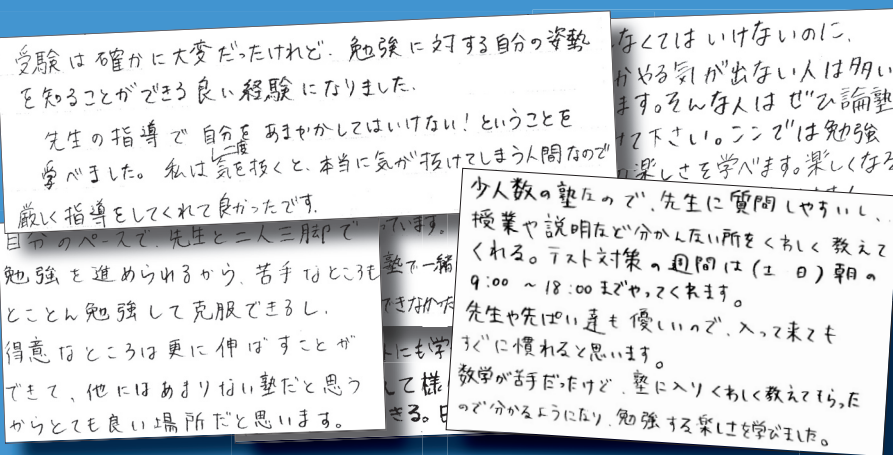 受験は確かに大変だったけれど、勉強に対する自分の姿勢
を知ることができる良い経験になりました。
先生の指導で自分をあまやかしてはいけない！ということを
学べました。私は一度気を抜くと、本当に気が抜けてしまう人間なので
厳しく指導をしてくれて良かったです。
なくてはいけないのに、
やる気が出ない人は多い
ます。そんな人はぜひ論塾
けて下さい。ここでは勉強
楽しさを学べます。楽しくなる
自分のペースで、先生と二人三脚で
勉強を進められるから、苦手なところも
とことん勉強して克服できるし、
得意なところは更に伸ばすことが
できて、他にはあまりない塾だと思う
からとても良い場所だと思います。
ています。
塾で一緒
できなかった
にも学
して様
きる。
少人数の塾なので、先生に質問しやすいし、
授業や説明など分かんない所をくわしく教えて
くれる。テスト対策の週間は(土 日)朝の
9:00 ～ 18:00 までやってくれます。
先生や先ぱい達も優しいので、入って来ても
すぐに慣れると思います。
数学が苦手だったけど、塾に入りくわしく教えてもらった
ので分かるようになり、勉強する楽しさを学びました。